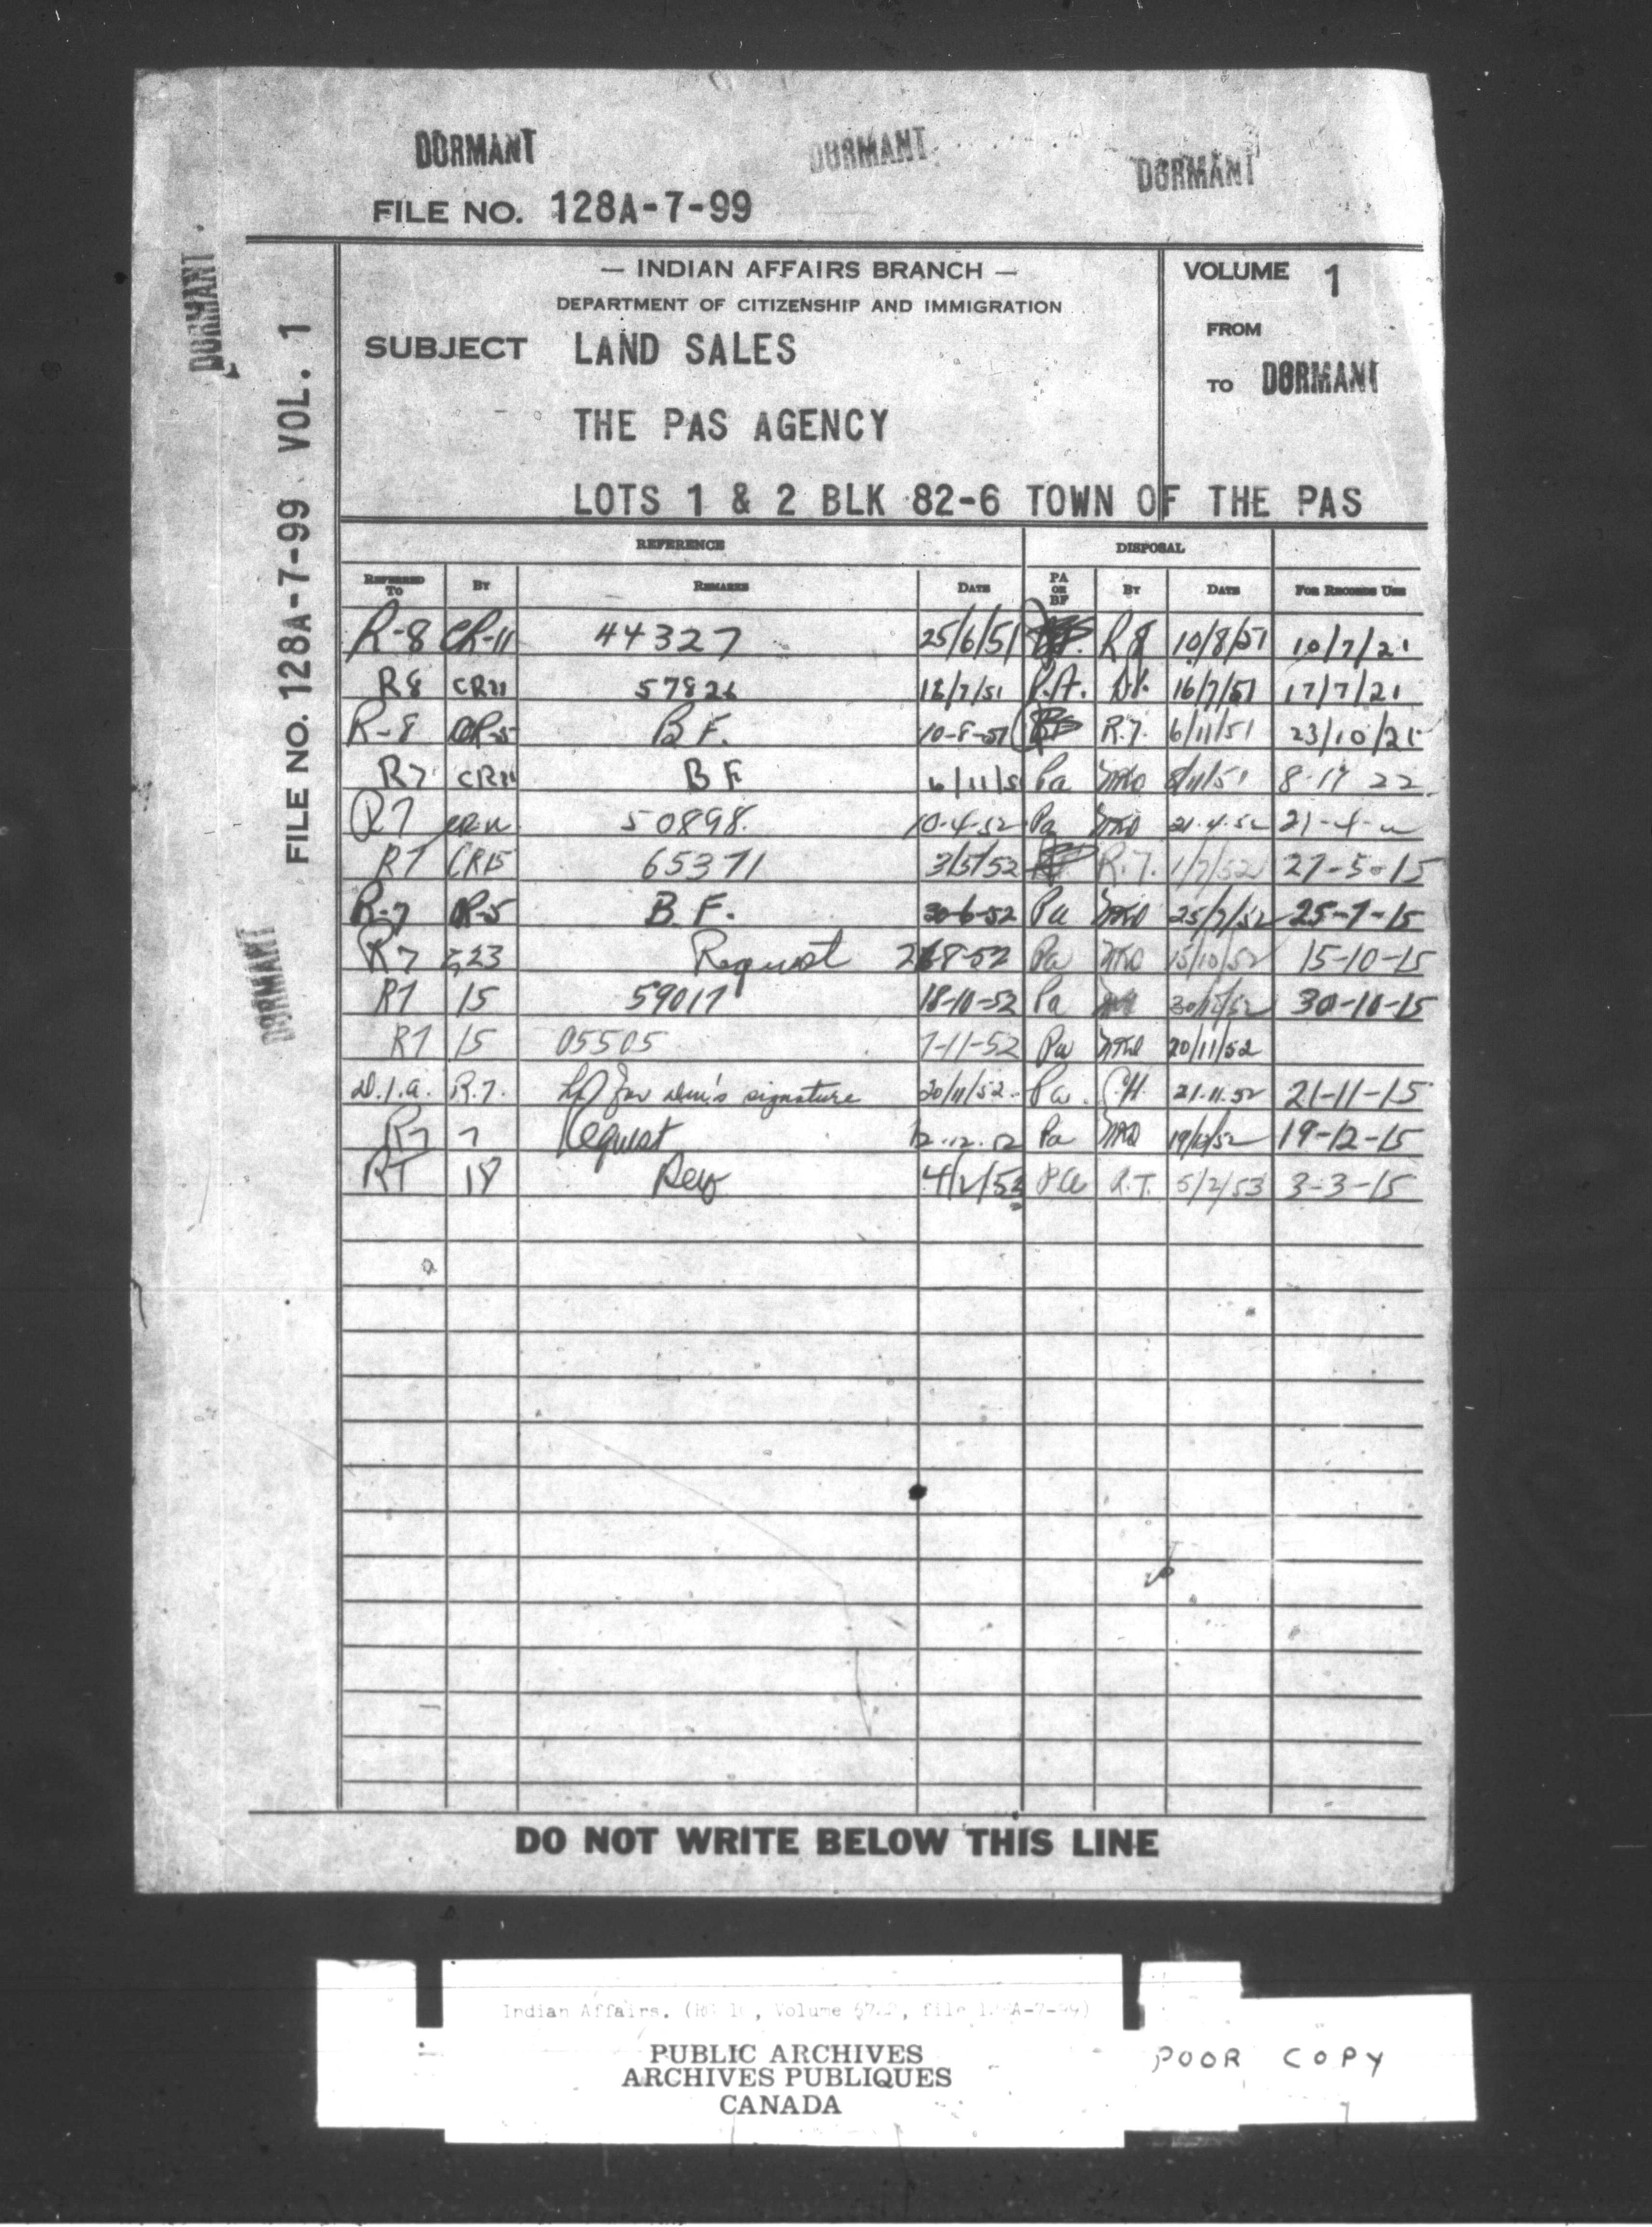 DORMANT DORMANT DORMANT
FILE NO. 128A-7-99
DORMANT
FILE NO. 128A-7-99 VOL. 1
DORMANT
— INDIAN AFFAIRS BRANCH —
DEPARTMENT OF CITIZENSHIP AND IMMIGRATION
SUBJECT LAND SALES
THE PAS AGENCY
LOTS 1 & 2 BLK 82-6 TOWN OF THE PAS
VOLUME 1
FROM
TO DORMANT
REFERENCE DISPOSAL
REFERRED TO BY REMARKS DATE PA OR BF BY DATE FOR RECORDS USE
R-8 CR-11 44327 25/6/51 R8 10/8/51 10/7/21
R8 CR21 57826 P.A. 16/7/51 17/7/21
R-8 B.F. 10-8-51 BF R.7. 6/11/51 23/10/21
R7 CR21 BF 6/11/51 Pa 8/11/51 8-11 22
R7 50898. 10-4-52 Pa 21.4.52 21-4
R7 CR15 65371 3/5/52 R.7. 1/7/52 27-5-15
R-7 B.F. 30-6-52 Pa 25/7/52 25-7-15
R7 Request Pa 15/10/52 15-10-15
R7 15 59017 18-10-52 Pa 30-10-15
R7 15 05505 7-11-52 Pa 20/11/52
D.I.A. R.7. for signature 20/11/52 Pa. C.H. 21.11.52 21-11-15
R7 7 Request 12.12.52 Pa 19/12/52 19-12-15
R7 18 4/2/53 PA R.7. 5/2/53 3-3-15
DO NOT WRITE BELOW THIS LINE
Indian Affairs. (RG 10, Volume file 128A-7-99)
PUBLIC ARCHIVES
ARCHIVES PUBLIQUES
CANADA
POOR COPY